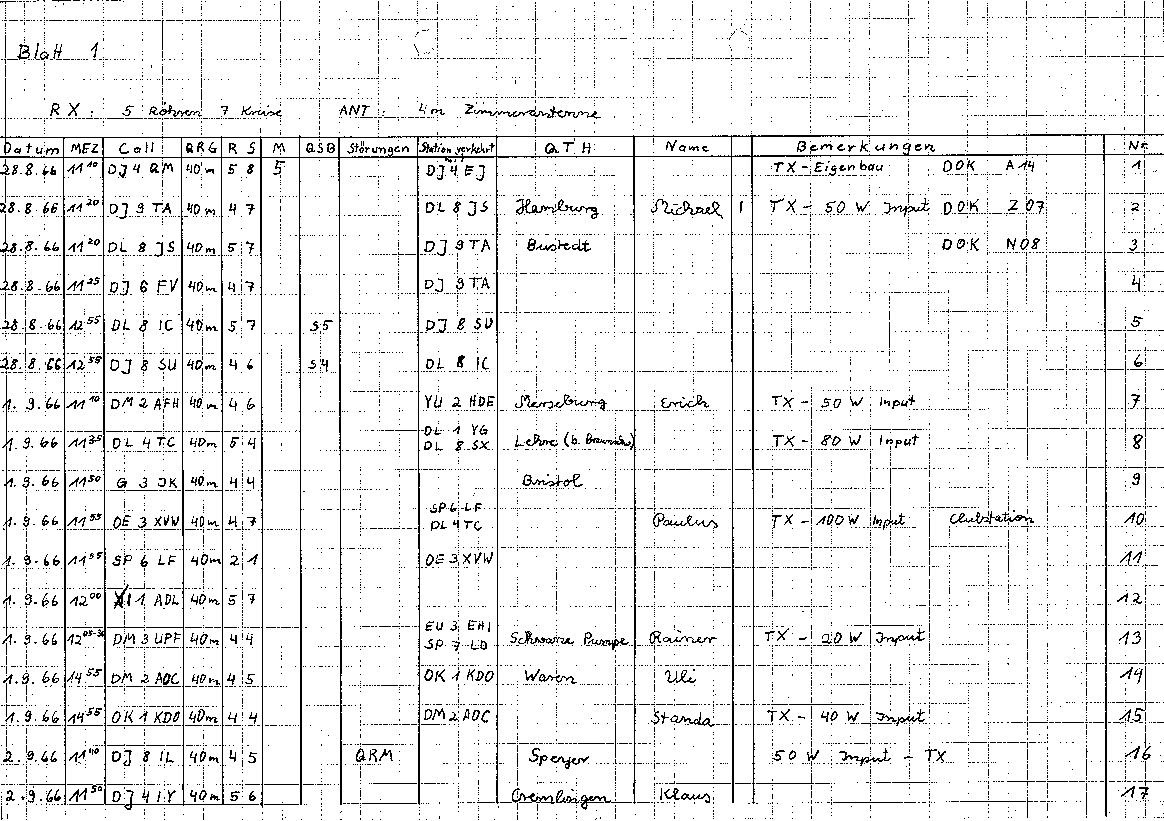 Blatt 1
RX: 5 Röhren 7 Kreise ANT: 4m Zimmerantenne
Datum MEZ Call QRG R S M QSB Störungen Station verkehrt mit QTH Name Bemerkungen Nr
28.8.66 11 10 DJ 4 QM 40m 5 8 5 DJ 4 EJ TX - Eigenbau DOK A14 1
28.8.66 11 20 DJ 9 TA 40m 4 7 DL 8 JS Hamburg Michael 1 TX - 50 W Input DOK Z07 2
28.8.66 11 20 DL 8 JS 40m 5 7 DJ 9 TA Bustedt DOK N08 3
28.8.66 11 25 DJ 6 FV 40m 4 7 DJ 9 TA 4
28.8.66 12 55 DL 8 IC 40m 5 7 S5 DJ 8 SU 5
28.8.66 12 55 DJ 8 SU 40m 4 6 S4 DL 8 IC 6
1.9.66 11 10 DM 2 AFH 40m 4 6 YU 2 HDE Merseburg Erich TX - 50 W Input 7
1.9.66 11 35 DL 4 TC 40m 5 4 DL 1 YG DL 8 SX Lehre (b. TX - 80 W Input 8
1.9.66 11 50 G 3 JK 40m 4 4 Bristol 9
1.9.66 11 55 OE 3 XVW 40m 4 7 SP 6 LF DL 4 TC Paulus TX - 100 W Input Clubstation 10
1.9.66 11 55 SP 6 LF 40m 2 1 OE 3 XVW 11
1.9.66 12 00 1 ADL 40m 5 7 12
1.9.66 12 DM 3 UPF 40m 4 4 EU 3 EHI SP 7 LD Schwarze Pumpe Rainer TX - 20 W Input 13
1.9.66 14 55 DM 2 AOC 40m 4 5 OK 1 KDO Waren Uli 14
1.9.66 14 55 OK 1 KDO 40m 4 4 DM 2 AOC Standa TX - 40 W Input 15
2.9.66 11 40 DJ 8 IL 40m 4 5 QRM Speyer 50 W Input - TX 16
2.9.66 11 50 DJ 4 IY 40m 5 6 Cremlingen Klaus 17